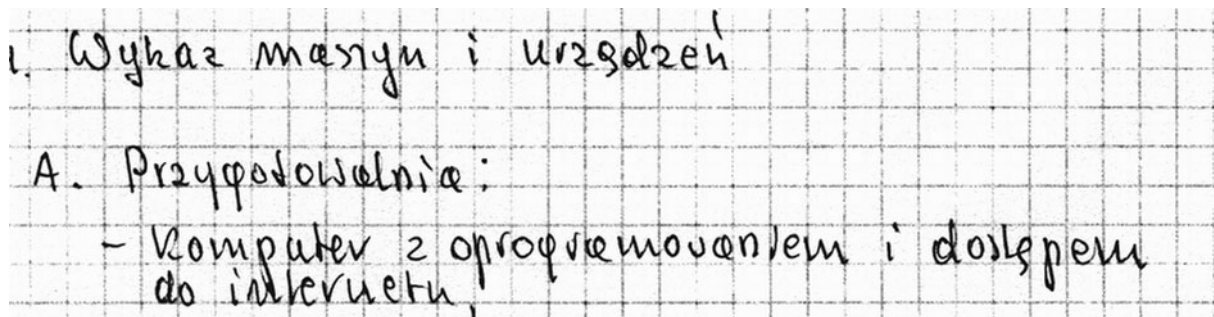 . Wykaz maszyn i urządzeń
A. Przygotowalnia:
- Komputer z oprogramowaniem i dostępem
do internetu,